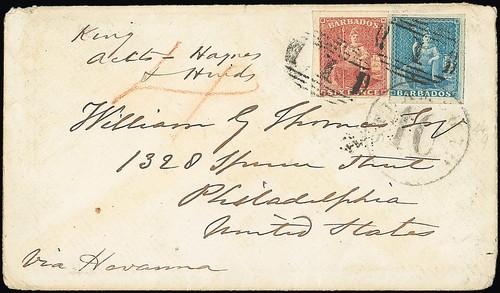 King
BARBADOS
SIX PENCE
BARBADOS
1
1
William G Thomas Esq
1328 Spruce Street
Philadelphia
United States
Via Havanna
10